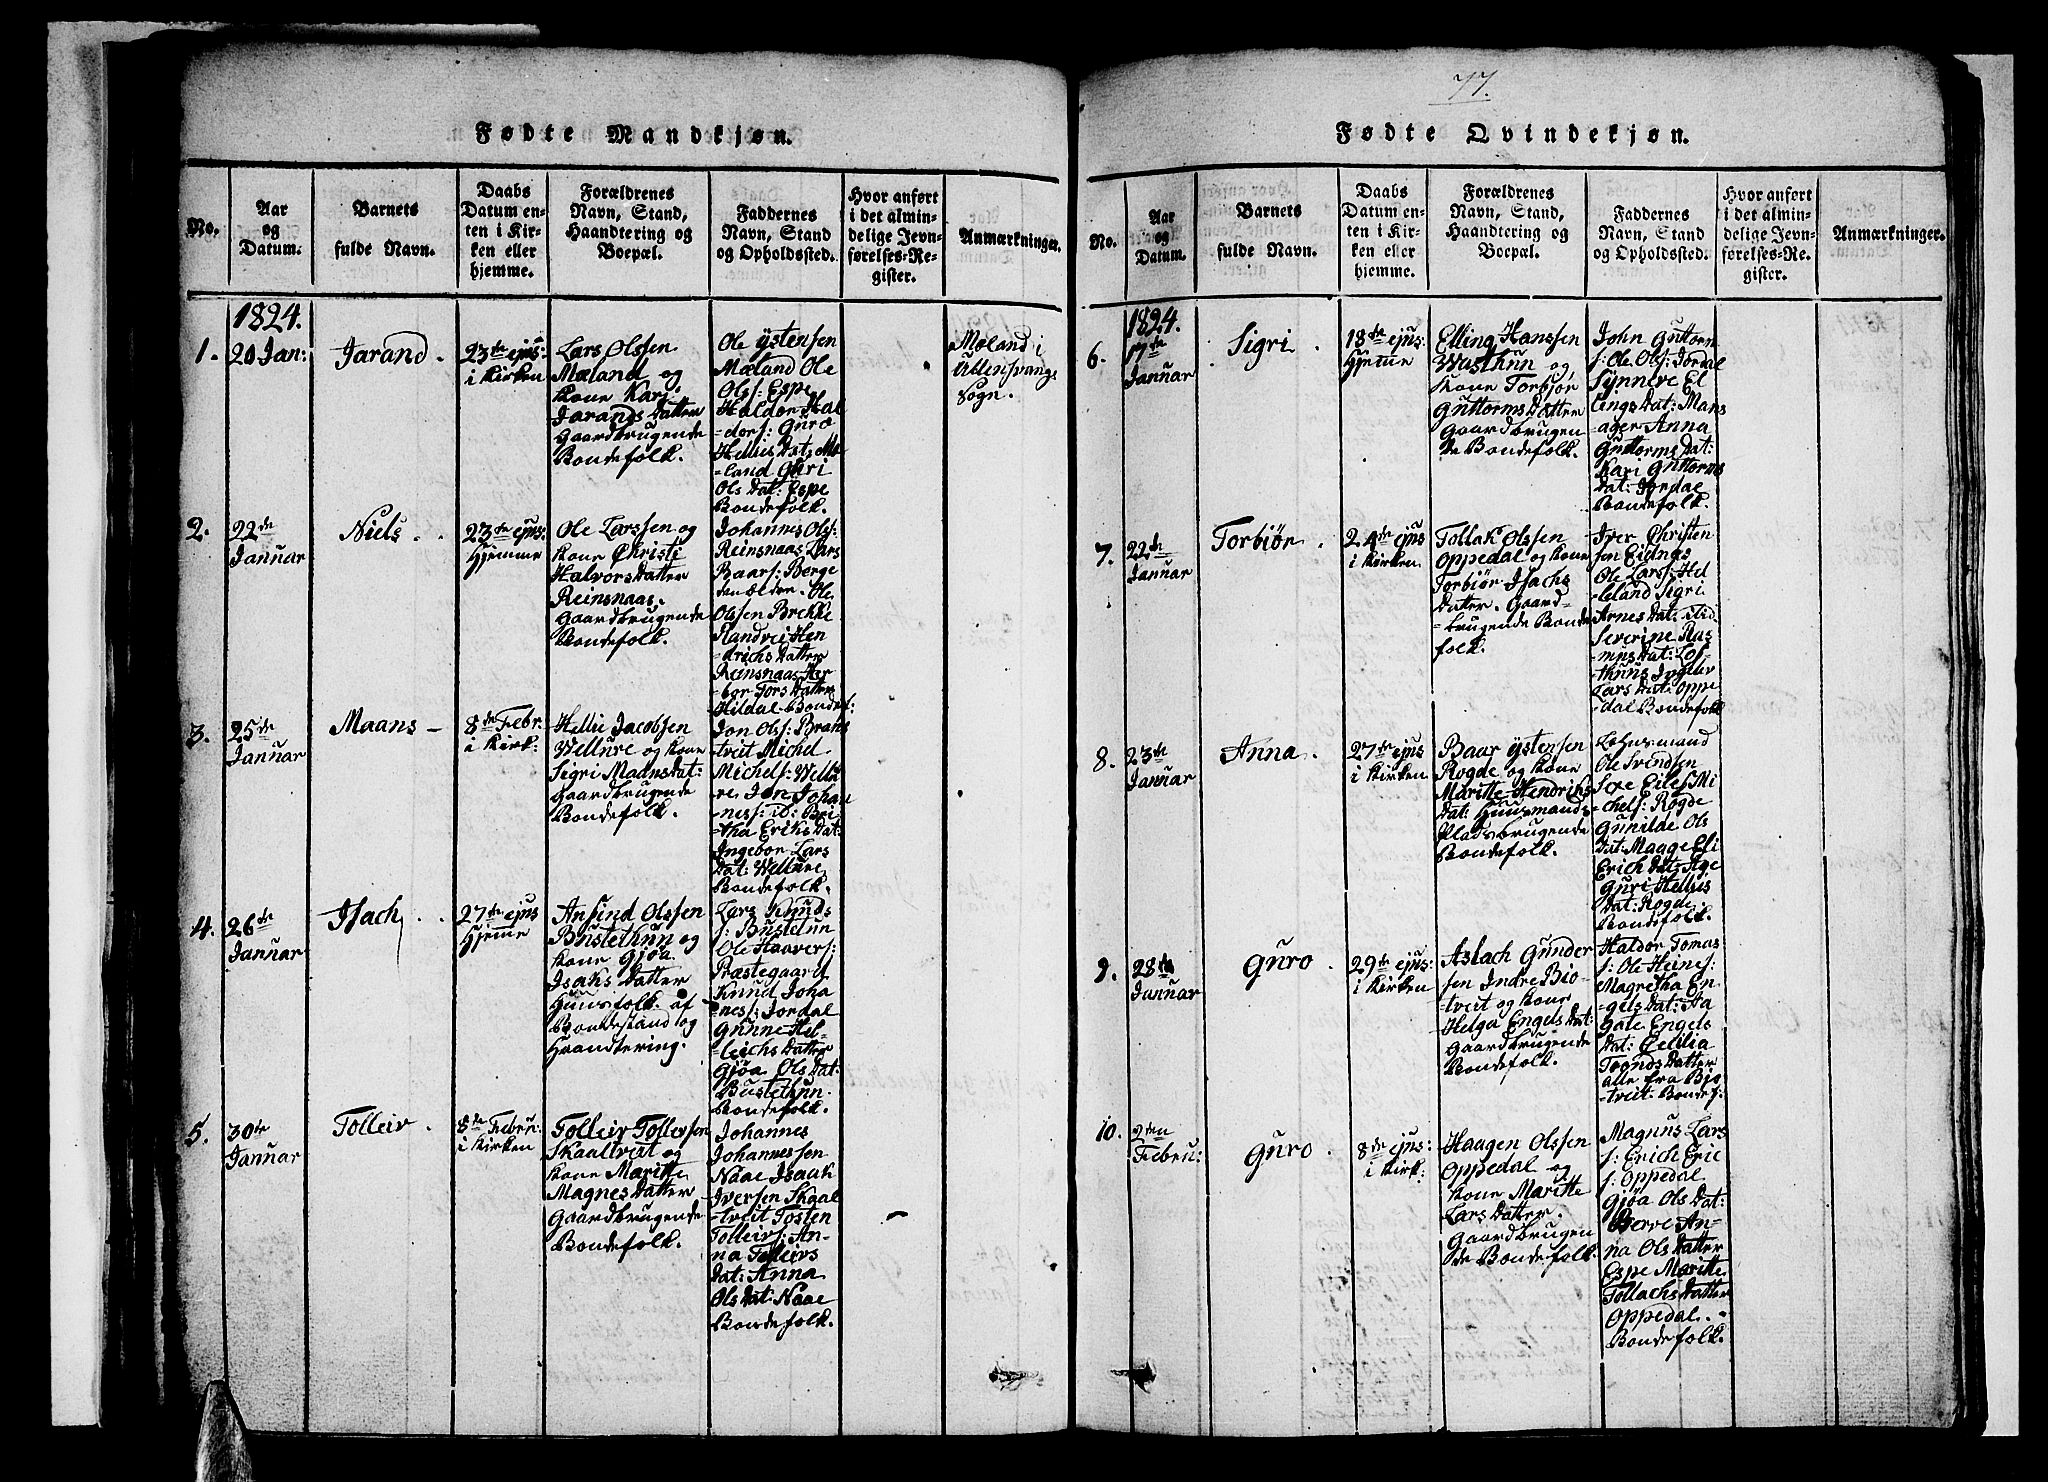 77.
Fødte Mandkjøn.
No.
Aar
og
Datum.
Barnets
fulde Navn.
Daabs
Datum en-
ten i Kir-
ken eller
hjemme.
Forældrenes
Navn, Stand,
Haandtering og
Boepæl.
Faddernes
Navn, Stand
og Opholdssted.
Hvor anført
i det almin-
delige Jevn-
førelses-Re-
gister.
Anmærkninger.
1824.
1.
20 Jan:
Jarand.
23de ejus:
i Kirken
Lars Olssen
Mæland og
Kone Kari
Jarands Datter
Gaardbrugende
Bondefolk.
Ole Ystensen
Mæland Ole
Ols: Espe
Haldor Hal
-dors: Guro
Hellies Dat: Mæ
-land Guri
Ols Dat: Espe
Bondefolk.
Mæland i
Ullensvangs
Sogn.
2.
22de
Januar
Niels.
23de ejus:
Hjemme
Ole Larssen og
Kone Christi
Halvors Datter
Reinsnaas.
Gaardbrugende
Bondefolk.
Johannes Ols:
Reinsnaas Lars
Baars: Berge
den ældre. Ole
Olssen Brekke
Randvei Hen
-drichs Datter
Reinsnaas Her
-bor Tors Datter
Hildal Bondef:
3.
25de
Januar
Maans
8de Febr.
i Kirk:
Hellie Jacobsen
Wellure og Kone
Sigri Maans dat:
Gaardbrugende
Bondefolk.
Jon Ols: Brans
-tveit Michel
Michels: Wellu
re. Jon Johan
-nes: ib: Bri
-tha Eriks Dat:
Ingebor Lars
Dat: Wellure
Bondefolk.
4.
26de
Januar
Isach
27de ejus
Hjemme
Ansind Olssen
Bustethun og
Kone Gjøa
Isaks Datter
Huusfolk af
Bondestand og
Haandtering.
Lars Knuds
s: Bustetun
Ole Haavers:
Præstegaard
Knud Joha
nes: Jordal
Gunne Hel-
-leichs Datter
Gjøa Ols Dat:
Bustethun
Bondefolk.
5.
30te
Januar
Tolleiv.
8de Febru:
i Kirken
Tolleiv Tollevsen
Skaaltveit og
Kone Maritte
Magnes Datter
Gaardbrugende
Bondefolk.
Johannes
Johannessen
Naae Isaak
Iversen Skaal
-tveit Tosten
Tolleivs: An-
na Tolleivs
Dat: Anna
Ols Dat: Naae
Bondefolk.
Fødte Qvindekjøn.
No.
Aar
og
Datum.
Barnets
fulde Navn.
Daabs
Datum en-
ten i Kir-
ken eller
hjemme.
Forældrenes
Navn, Stand,
Haandtering og
Boepæl.
Faddernes
Navn, Stand
og Opholdssted.
Hvor anført
i det almin-
delige Jevn-
førelses-Re-
gister.
Anmærkninger.
1824.
6.
17de
Januar
Sigri.
18de ejus:
Hjemme
Elling Hanssen
Wasthun og
Kone Torbjør
Guttorms Datter
Gaardbrugen
de Bondefolk.
John Guttorm
s: Ole Ols: Jordal
Synneve El
lings Dat: Mans
-ager Anna
Guttorms Dat:
Kari Guttorms
Dat: Jordal
Bondefolk.
7.
22de
Januar
Torbiør.
24de ejus
i Kirken.
Tollak Olssen
Oppedal og Kone
Torbiør Isachs
Datter. Gaard-
-brugende Bonde
folk.
Iver Christen
sen Eidnes
Ole Lars: Hel
-leland Sigri
Arnes Dat: ibid
Severine Ras
-mus Dat: Lof-
-thuus Ingebor
Lars Dat: Oppe
-dal Bondefolk
8.
23de
Januar
Anna.
27de ejus
i Kirken
Baar Ystensen
Rogde og Kone
Maritte Hendriks
Dat: Huusmands
Pladsbrugende
Bondefolk.
Lehnsmand
Ole Svindsen
Sexe Eiles Mi
-chels: Rogde
Gunilde Ols
Dat: Maage Eli
Erich Dat: Age
Guri Hellies
Dat: Rogde.
Bondefolk.
9.
28de
Januar
Guro.
29de ejus:
i Kirken
Aslach Gunder
sen Indre Bio-
-tveit og Kone
Helga Engels Dat:
Gaardbrugende
Bondefolk.
Haldor Tomas
s: Ole Heines:
Magretha En-
-gels Dat: Aa
Gate Engels
Dat: Cecilia
Tronds Datter
alle fra Bjo
-tveit Bondef:
10.
2den
Febru:
Guro.
8de ejus:
i Kirk:
Haagen Olssen
Oppedal og
Kone Maritte
Lars Datter.
Gaardbrugen
de Bondefolk.
Magnus Lars
s: Erich Eric
s: Oppedal
Gjøa Ols Dat:
Berve An-
na Ols Datter
Espe Maritte
Tollachs Datter
Oppedal.
Bondefolk.